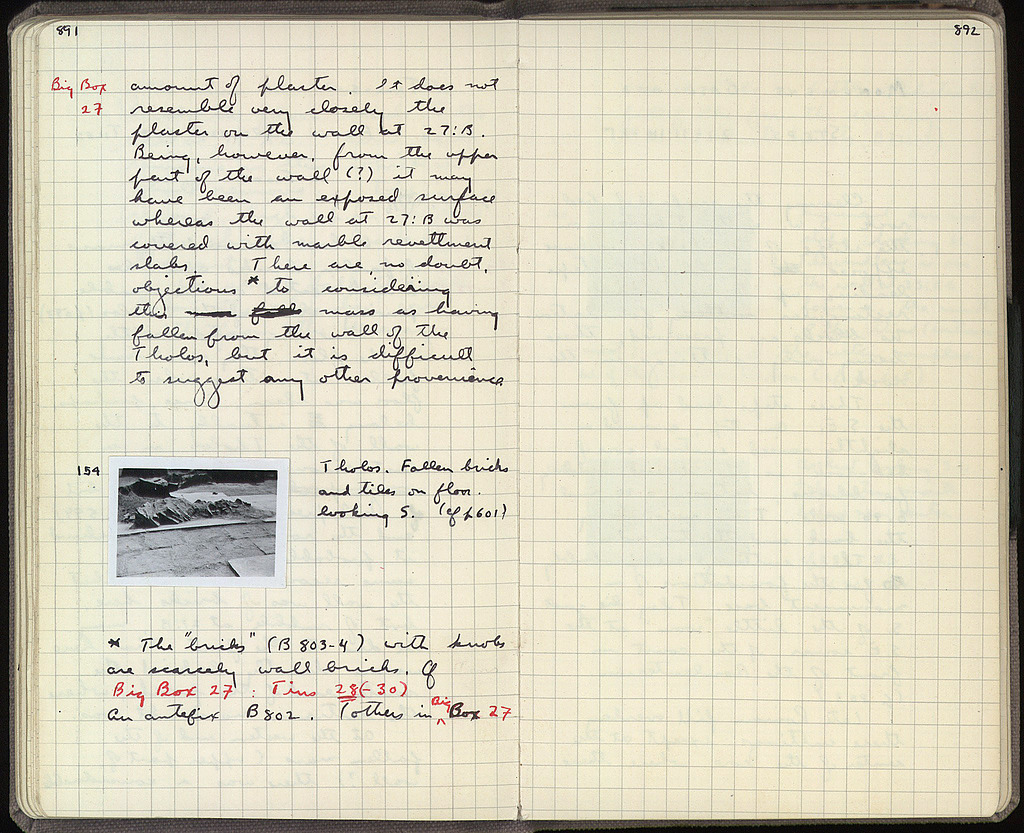 891
892
Big Box
27
amount of plaster. It does not
resemble very closely the
plaster on the wall at 27:B.
Being, however, from the upper
part of the wall (?) it may
have been an exposed surface
whereas the wall at 27:B was
covered with marble revettment
slabs. There are, no doubt,
objections * to considering
this mass as having
fallen from the wall of the
Tholos, but it is difficult
to suggest any other provenience
154
Tholos. Fallen bricks
and tiles on floor.
looking S. (cf p601)
* The "bricks" (B 803-4) with knobs
are scarcely wall bricks. Cf
Big Box 27 : Tins 28(-30)
an antefix B 802. (others in Big Box 27